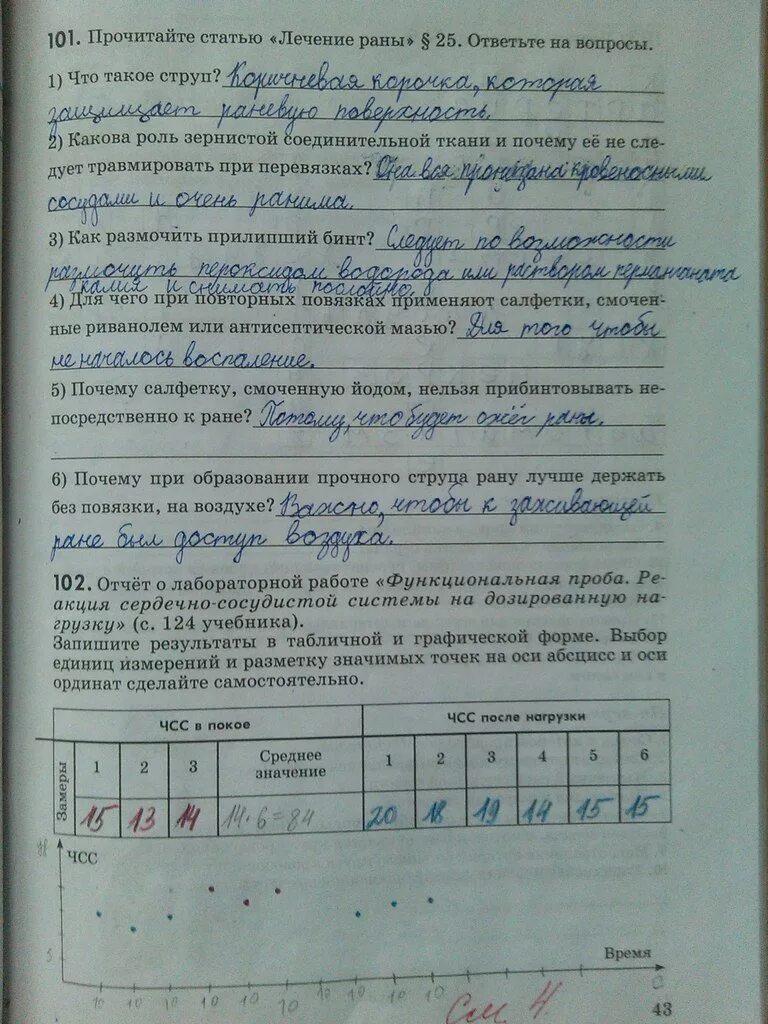 101. Прочитайте статью «Лечение раны» § 25. Ответьте на вопросы.
1) Что такое струп? Коричневая корочка, которая
защищает раневую поверхность.
2) Какова роль зернистой соединительной ткани и почему её не сле-
дует травмировать при перевязках? Она вся пронизана кровеносными
сосудами и очень ранима.
3) Как размочить прилипший бинт? Следует по возможности
размочить пероксидом водорода или раствором перманганата
калия и снимать послойно.
4) Для чего при повторных повязках применяют салфетки, смочен-
ные риванолем или антисептической мазью? Для того чтобы
не началось воспаление.
5) Почему салфетку, смоченную йодом, нельзя прибинтовывать не-
посредственно к ране? Потому, что будет ожёг раны.
6) Почему при образовании прочного струпа рану лучше держать
без повязки, на воздухе? Важно, чтобы к заживающей
ране был доступ воздуха.
102. Отчёт о лабораторной работе «Функциональная проба. Ре-
акция сердечно-сосудистой системы на дозированную на-
грузку» (с. 124 учебника).
Запишите результаты в табличной и графической форме. Выбор
единиц измерений и разметку значимых точек на оси абсцисс и оси
ординат сделайте самостоятельно.
ЧСС в покое ЧСС после нагрузки
Замеры 1 2 3 Среднее значение 1 2 3 4 5 6
15 13 14 14·6=84 20 18 19 14 15 15
ЧСС
5
Время
10 10 10 10 10 10 10 10 10 10
См 4.
43